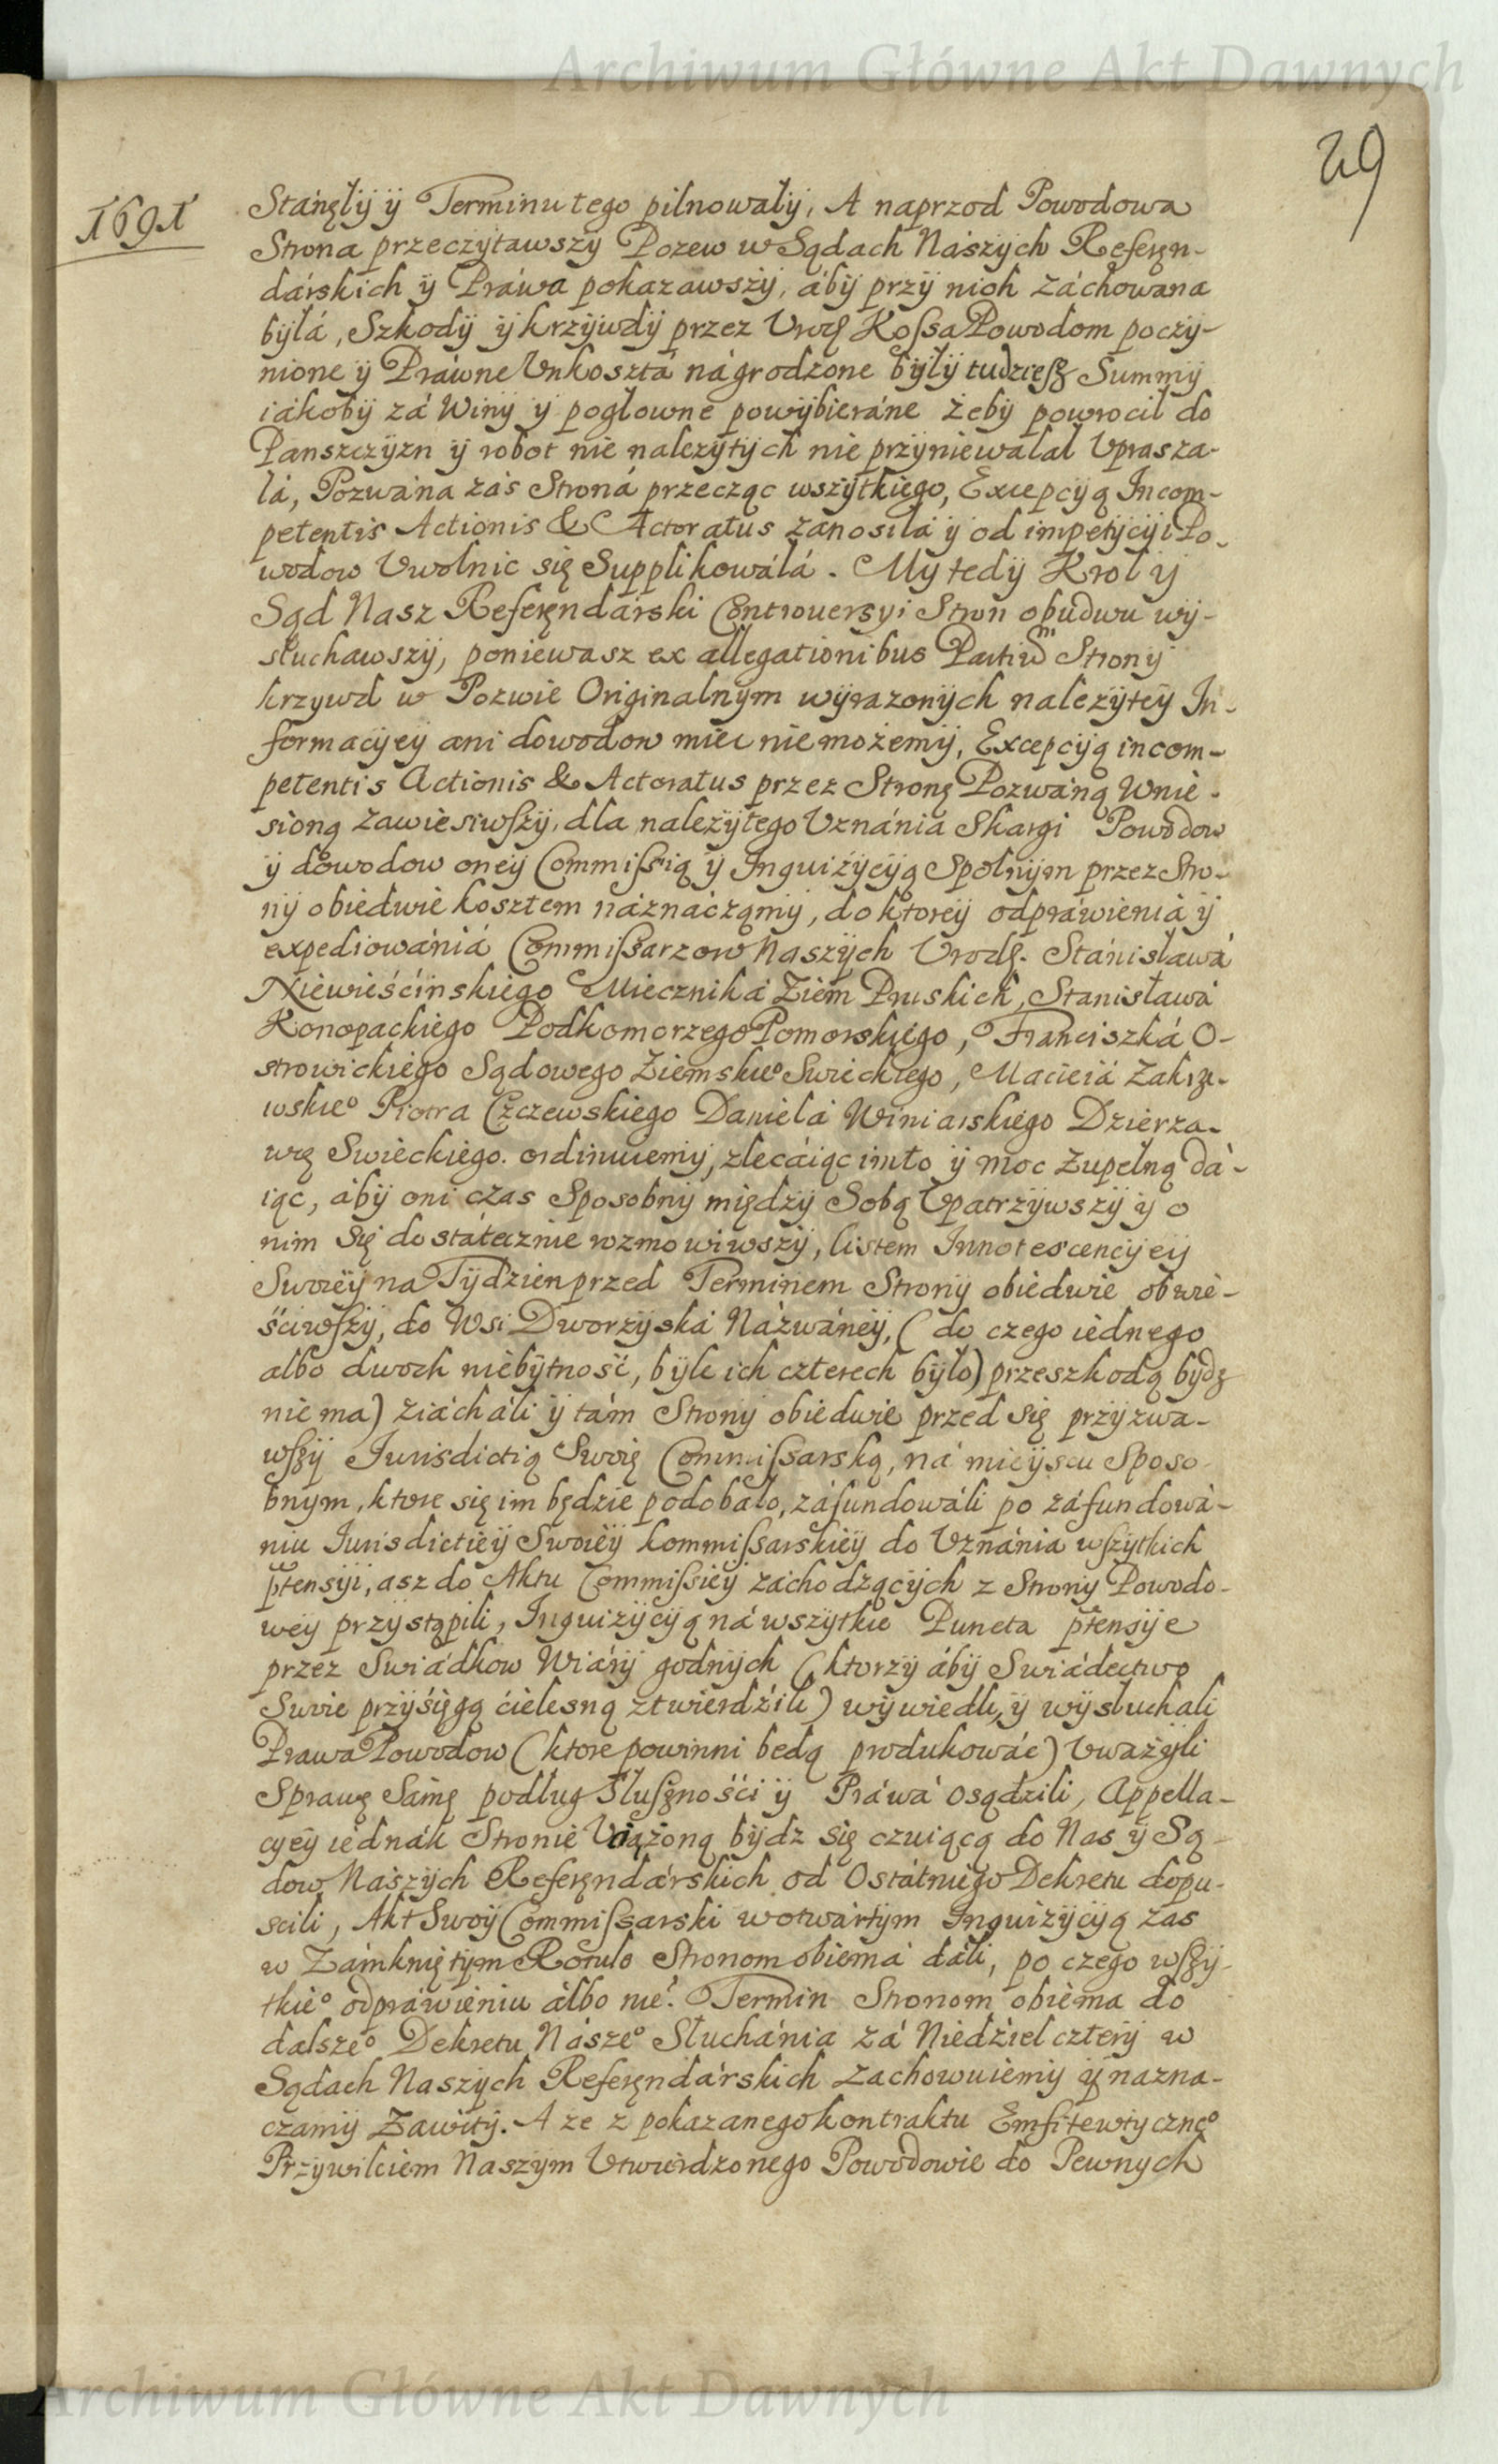 Archiwum Główne Akt Dawnych
29
1691
Stánęłÿ ÿ Terminu tego pilnowałÿ, A naprzod Powodowa
Strona przeczÿtawszÿ Pozew w Sądach Nászÿch Referęn-
dárskich ÿ Práwa pokazawszÿ, ábÿ przÿ nich záchowana
bÿłá, Szkodÿ ÿ krzÿwdÿ przez Urodz Kossa Powodom poczÿ-
nione ÿ Práwne Vnkosztá nágrodzone bÿłÿ tudziesz Summÿ
iákobÿ zá Winÿ ÿ pogłowne powÿbieráne żebÿ powrocił do
Panszczÿzn ÿ robot nie nalezÿtÿch nie przÿniewalał Vprasza-
łá, Pozwána zás Stroná przecząc wszÿtkiego, Excepcÿą Incom-
petentis Actionis & Actoratus zanosiłá ÿ od impetÿcÿi Po-
wodow Vwolnic się Supplikowáłá. Mÿ tedÿ Krol ÿ
Sąd Nasz Referęndárski Controuersÿi Stron obudwu wÿ-
słuchawszÿ, poniewasz ex allegationibus Partium Stronÿ
krzywd w Pozwie Originalnÿm wÿrazonÿch nalezÿteÿ In-
formacÿeÿ ani dowodow miec nie możemÿ, Excepcÿą incom-
petentis Actionis & Actoratus przez Stronę Pozwáną Wnie-
sioną zawiesiwszÿ, dla nalezÿtego Uznánia Skargi Powodow
ÿ dowodow oneÿ Commissią ÿ Inquizÿcÿą Spolnÿm przez Stro-
nÿ obiedwie kosztem náznáczamÿ, do ktoreÿ odpráwieniá ÿ
expediowániá Commissarzow Naszÿch Vrodz. Stánisławá
Niewieścinskiego Miecznika Ziem Pruskich, Stanisławá
Konopackiego Podkomorzego Pomorskiego, Franciszká O-
strowickiego Sądowego Ziemskieo Swieckiego, Macieiá Zakrze-
wskieo Piotra Czczewskiego Danielá Winiarskiego Dzierza-
wę Swieckiego. ordinuiemÿ, zlecáiąc im to ÿ moc zupełną dá-
iąc, ábÿ oni czas Sposobnÿ międzÿ Sobą Vpatrzÿwszÿ ÿ o
nim Się dostátecznie rozmowiwszÿ, listem Innotescencÿeÿ
Swoieÿ na Tÿdzien przed Terminem Stronÿ obiedwie obwie-
ściwszÿ, do Wsi Dworzÿská Názwáneÿ, (do czego iednego
albo dwoch niebÿtność, bÿle ich czterech bÿło) przeszkodą bydz
nie ma) ziácháli ÿ tám Stronÿ obiedwie przed się przÿzwa-
wszÿ Jurisdictią Swoię Commissarską, ná mieÿscu Sposo-
bnym, ktore się im będzie podobało, záfundowáli po záfundowá-
niu Jurisdictieÿ Swoieÿ kommissarskieÿ do Vznánia wszÿtkich
ptensÿi, asz do Aktu Commissieÿ záchodzącÿch z Stronÿ Powodo-
weÿ przÿstąpili, Inquizÿcÿą ná wszÿtkie Puncta ptensÿe
przez Swiádkow Wiárÿ godnÿch (ktorzÿ ábÿ Swiádectwo
Swoie przÿsięgą cielesną ztwierdźili) wÿwiedli, ÿ wÿsłuchali
Prawa Powodow (ktore powinni bedą produkowác) Vważÿli
Sprawę Sámę podług Słuszności ÿ Práwá osądzili, Appella-
cÿeÿ iednák Stronie Vciążoną bÿdz się czuiącą do Nas ÿ Są-
dow Naszÿch Referęndárskich od Ostátniego Dekretu dopu-
scili, Akt Swoÿ Commissarski w otwártÿm Inquizÿcÿą zas
w Zámkniętÿm Rotule Stronom obiemá dáli, po czego wszÿ-
tkieo odpráwieniu álbo nie. Termin Stronom obiema do
dalszeo Dekretu Nászeo Słuchánia zá Niedźiel czterÿ w
Sądach Naszÿch Referęndárskich zachowuiemÿ ÿ nazna-
czamÿ Zawitÿ. A ze z pokazanego kontraktu Emfitewtÿczneo
Przÿwileiem Naszÿm Vtwierdzonego Powodowie do Pewnych
Archiwum Główne Akt Dawnych